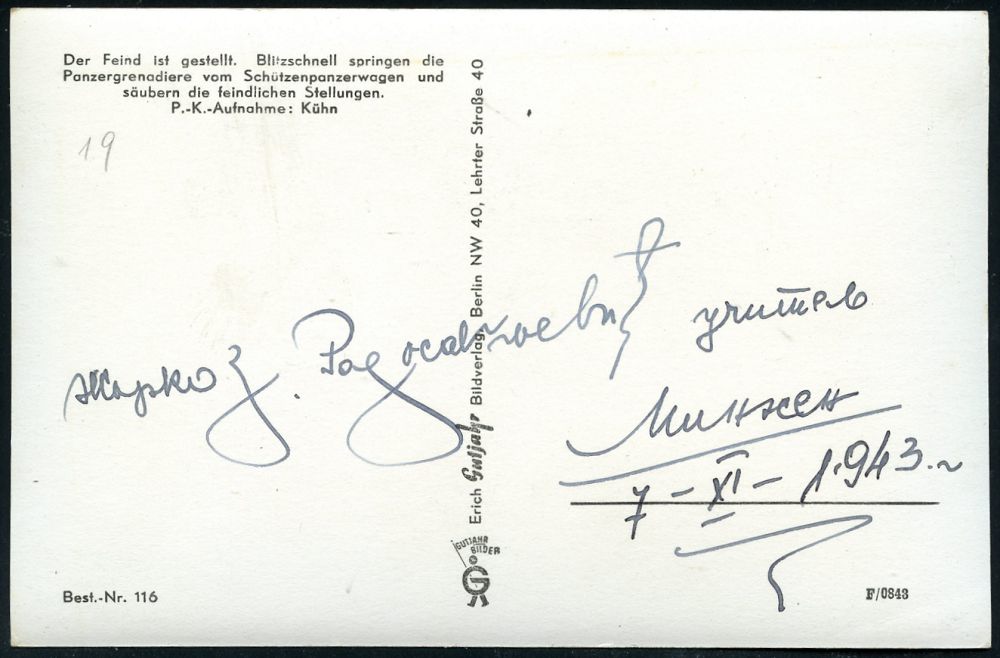 Der Feind ist gestellt. Blitzschnell springen die
Panzergrenadiere vom Schützenpanzerwagen und
säubern die feindlichen Stellungen.
P.-K.-Aufnahme: Kühn
19
Erich Gutjahr Bildverlag, Berlin NW 40, Lehrter Straße 40
Жарко З. Радосављевић учитељ
Минхен
7-XI-1943.
GUTJAHR
BILDER
G
Best.-Nr. 116
F/0843